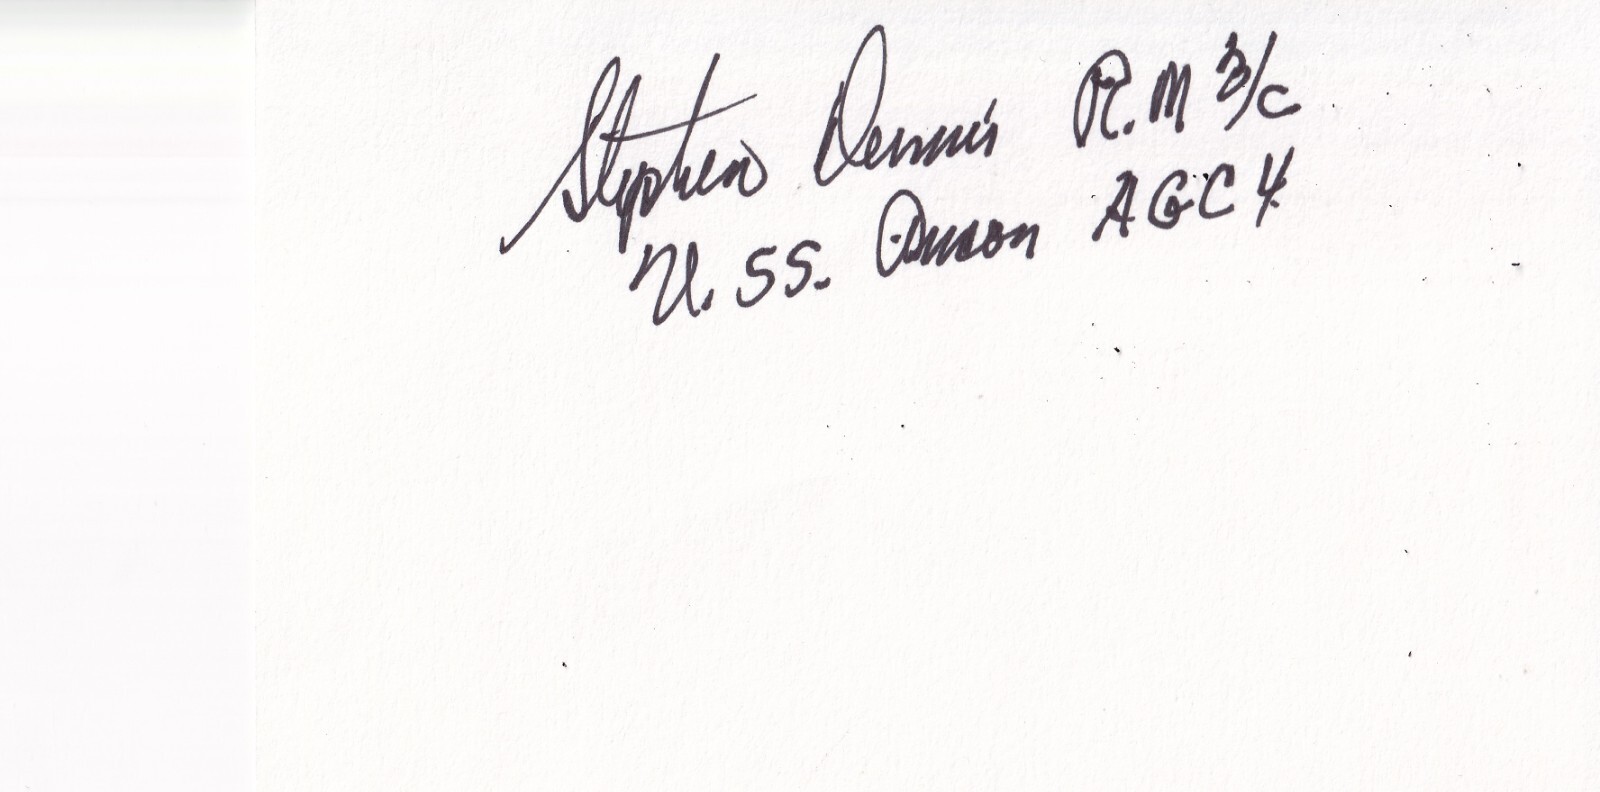 Stephen Dennis R.M 3/c
U.SS. Ancon AGC 4